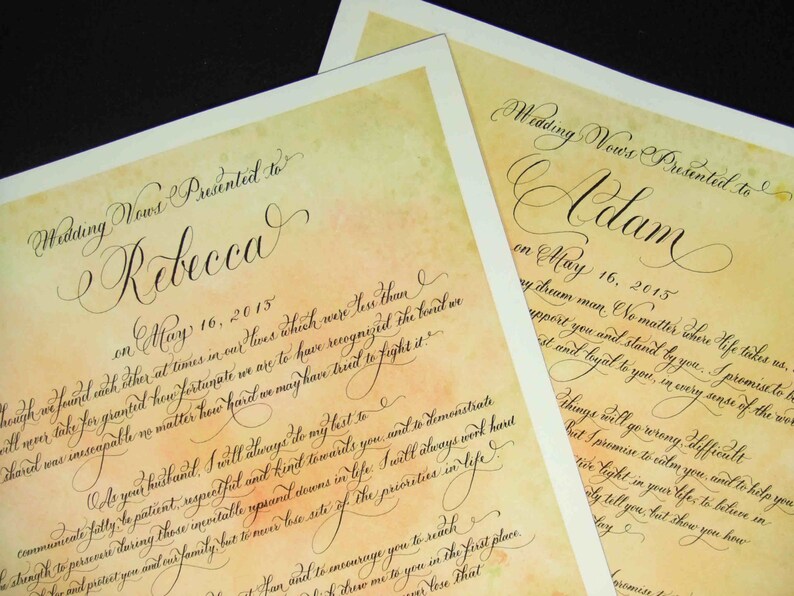 Wedding Vows Presented to
Rebecca
on May 16, 2015
though we found each other at times in our lives which were less than
will never take for granted how fortunate we are to have recognized the bond we
shared was inescapable no matter how hard we may have tried to fight it.
As your husband, I will always do my best to
communicate fully, be patient, respectful and kind towards you, and to demonstrate
strength to persevere during those inevitable ups and downs in life. I will always work hard
for and protect you and our family, but to never lose site of the priorities in life.
fan and to encourage you to reach
which drew me to you in the first place.
never lose that
Wedding Vows Presented to
Adam
on May 16, 2015
my dream man. No matter where life takes us, I
support you and stand by you. I promise to be
and loyal to you, in every sense of the wor
things will go wrong, difficult
But I promise to calm you, and to help you
light in your life, to believe in
tell you, but show you how
day
promise to